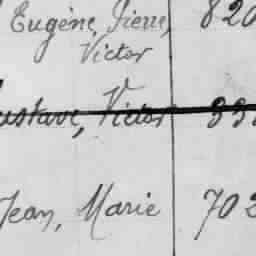 Eugène, Pierre, 820
Victor
ustave, Victor 33
Jean, Marie 702